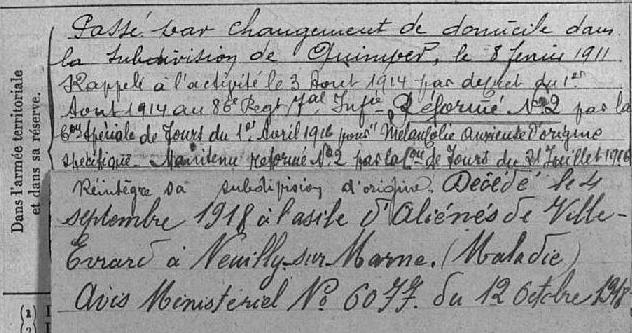 Dans l'armée territoriale
et dans sa réserve.
Passé par changement de domicile dans
la subdivision de Quimper, le 8 février 1911
Rappelé à l'activité le 3 Aout 1914 par décret du 1er
Aout 1914 au 86e Regt Tal Infie Réformé No 2 par la
Con spéciale de Tours du 1er Avril 1916 pour "Mélancolie anxieuse d'origine
spécifique. Maintenu réformé No 2 par la Con de Tours du 31 Juillet 1916
Réintègre sa subdivision d'origine. Décédé le 4
septembre 1918 à l'asile d'Aliénés de Ville-
Evrard à Neuilly-sur-Marne. (Maladie)
Avis Ministériel No 6077 du 12 Octobre 1918
(1)
(2)